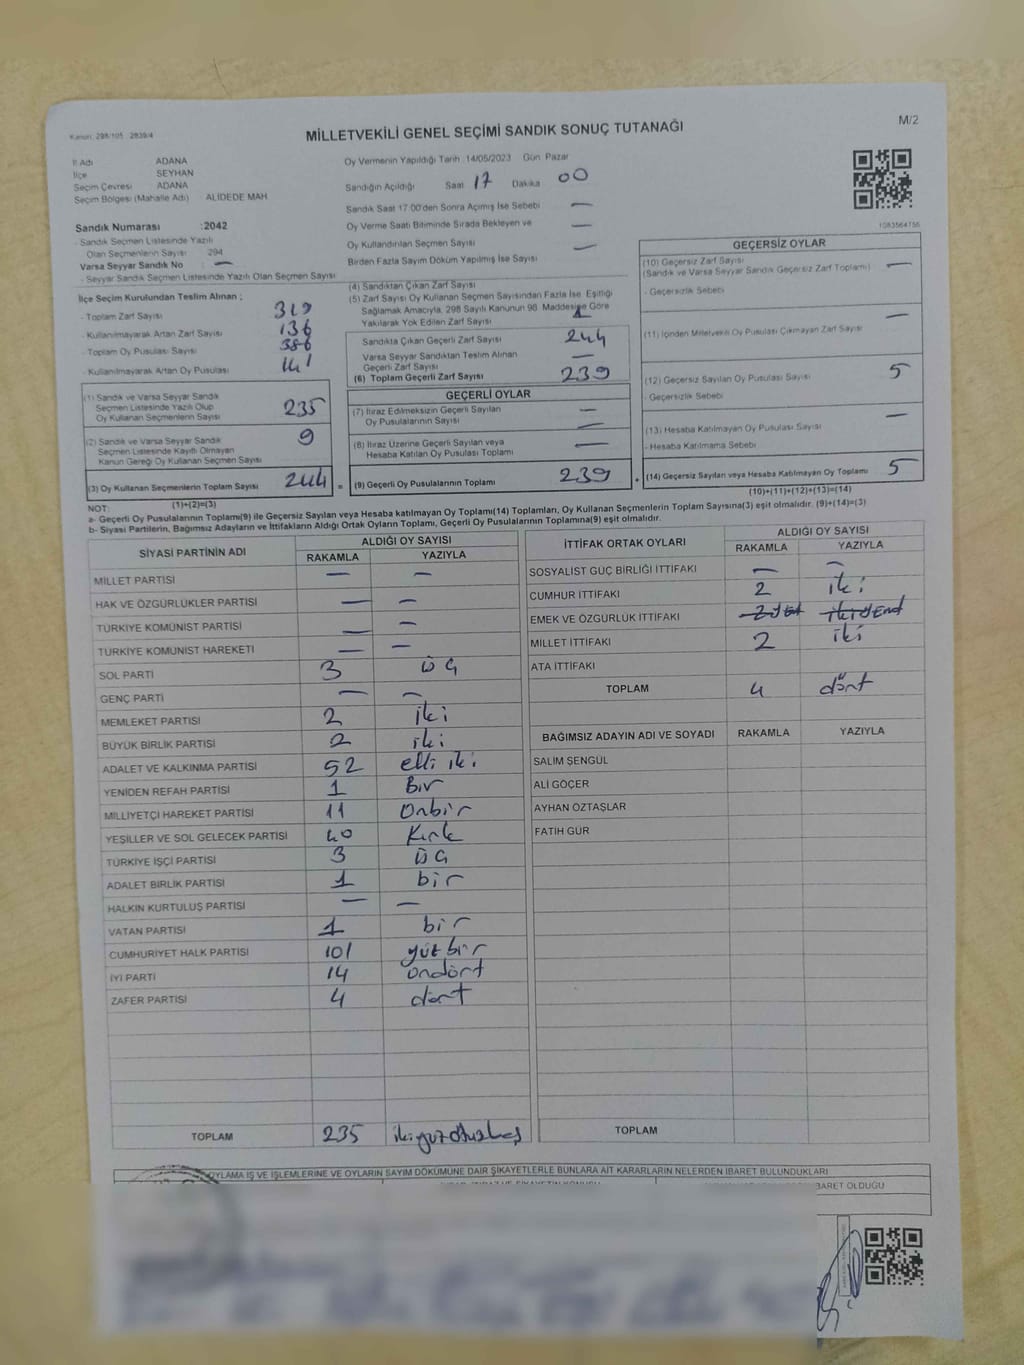 Kanun: 298/105 2839/4
MİLLETVEKİLİ GENEL SEÇİMİ SANDIK SONUÇ TUTANAĞI
M/2
İl Adı ADANA
İlçe SEYHAN
Seçim Çevresi ADANA
Seçim Bölgesi (Mahalle Adı) ALİDEDE MAH
Sandık Numarası :2042
- Sandık Seçmen Listesinde Yazılı
Olan Seçmenlerin Sayısı 294
Varsa Seyyar Sandık No : —
- Seyyar Sandık Seçmen Listesinde Yazılı Olan Seçmen Sayısı
Oy Vermenin Yapıldığı Tarih 14/05/2023 Gün Pazar
Sandığın Açıldığı Saat 17 Dakika 00
Sandık Saat 17:00'den Sonra Açımış İse Sebebi —
Oy Verme Saati Bitiminde Sırada Bekleyen ve —
Oy Kullandırılan Seçmen Sayısı —
Birden Fazla Sayım Döküm Yapılmış İse Sayısı
1083564756
İlçe Seçim Kurulundan Teslim Alınan ;
- Toplam Zarf Sayısı 319
- Kullanılmayarak Artan Zarf Sayısı 136
- Toplam Oy Pusulası Sayısı 386
- Kullanılmayarak Artan Oy Pusulası 141
(1) Sandık ve Varsa Seyyar Sandık
Seçmen Listesinde Yazılı Olup
Oy Kullanan Seçmenlerin Sayısı 235
(2) Sandık ve Varsa Seyyar Sandık
Seçmen Listesinde Kayıtlı Olmayan
Kanun Gereği Oy Kullanan Seçmen Sayısı 9
(3) Oy Kullanan Seçmenlerin Toplam Sayısı 244 =
(1)+(2)=(3)
(4) Sandıktan Çıkan Zarf Sayısı
(5) Zarf Sayısı Oy Kullanan Seçmen Sayısından Fazla İse, Eşitliği
Sağlamak Amacıyla, 298 Sayılı Kanunun 98. Maddesine Göre
Yakılarak Yok Edilen Zarf Sayısı
Sandıkta Çıkan Geçerli Zarf Sayısı 244
Varsa Seyyar Sandıktan Teslim Alınan
Geçerli Zarf Sayısı —
(6) Toplam Geçerli Zarf Sayısı 239
GEÇERLİ OYLAR
(7) İtiraz Edilmeksizin Geçerli Sayılan
Oy Pusulalarının Sayısı —
(8) İtiraz Üzerine Geçerli Sayılan veya
Hesaba Katılan Oy Pusulası Toplamı —
(9) Geçerli Oy Pusulalarının Toplamı 239 +
GEÇERSİZ OYLAR
(10) Geçersiz Zarf Sayısı
(Sandık ve Varsa Seyyar Sandık Geçersiz Zarf Toplamı) —
- Geçersizlik Sebebi
(11) İçinden Milletvekili Oy Pusulası Çıkmayan Zarf Sayısı —
(12) Geçersiz Sayılan Oy Pusulası Sayısı 5
- Geçersizlik Sebebi
(13) Hesaba Katılmayan Oy Pusulası Sayısı —
- Hesaba Katılmama Sebebi
(14) Geçersiz Sayılan veya Hesaba Katılmayan Oy Toplamı 5
(10)+(11)+(12)+(13)=(14)
NOT:
a- Geçerli Oy Pusulalarının Toplamı(9) ile Geçersiz Sayılan veya Hesaba katılmayan Oy Toplamı(14) Toplamları, Oy Kullanan Seçmenlerin Toplam Sayısına(3) eşit olmalıdır. (9)+(14)=(3)
b- Siyasi Partilerin, Bağımsız Adayların ve İttifakların Aldığı Ortak Oyların Toplamı, Geçerli Oy Pusulalarının Toplamına(9) eşit olmalıdır.
SİYASİ PARTİNİN ADI ALDIĞI OY SAYISI
RAKAMLA YAZIYLA
MİLLET PARTİSİ — —
HAK VE ÖZGÜRLÜKLER PARTİSİ — —
TÜRKİYE KOMÜNİST PARTİSİ — —
TÜRKİYE KOMÜNİST HAREKETİ — —
SOL PARTİ 3 üç
GENÇ PARTİ — —
MEMLEKET PARTİSİ 2 iki
BÜYÜK BİRLİK PARTİSİ 2 iki
ADALET VE KALKINMA PARTİSİ 52 elli iki
YENİDEN REFAH PARTİSİ 1 Bir
MİLLİYETÇİ HAREKET PARTİSİ 11 Onbir
YEŞİLLER VE SOL GELECEK PARTİSİ 40 Kırk
TÜRKİYE İŞÇİ PARTİSİ 3 üç
ADALET BİRLİK PARTİSİ 1 bir
HALKIN KURTULUŞ PARTİSİ — —
VATAN PARTİSİ 1 bir
CUMHURİYET HALK PARTİSİ 101 yüzbir
İYİ PARTİ 14 ondört
ZAFER PARTİSİ 4 dört
TOPLAM 235 ikiyüzotuzbeş
İTTİFAK ORTAK OYLARI ALDIĞI OY SAYISI
RAKAMLA YAZIYLA
SOSYALİST GÜÇ BİRLİĞİ İTTİFAKI — —
CUMHUR İTTİFAKI 2 iki
EMEK VE ÖZGÜRLÜK İTTİFAKI
MİLLET İTTİFAKI 2 iki
ATA İTTİFAKI
TOPLAM 4 dört
BAĞIMSIZ ADAYIN ADI VE SOYADI RAKAMLA YAZIYLA
SALİM ŞENGÜL
ALİ GÖÇER
AYHAN ÖZTAŞLAR
FATİH GÜR
TOPLAM
OYLAMA İŞ VE İŞLEMLERİNE VE OYLARIN SAYIM DÖKÜMÜNE DAİR ŞİKAYETLERLE BUNLARA AİT KARARLARIN NELERDEN İBARET BULUNDUKLARI
İBARET OLDUĞU